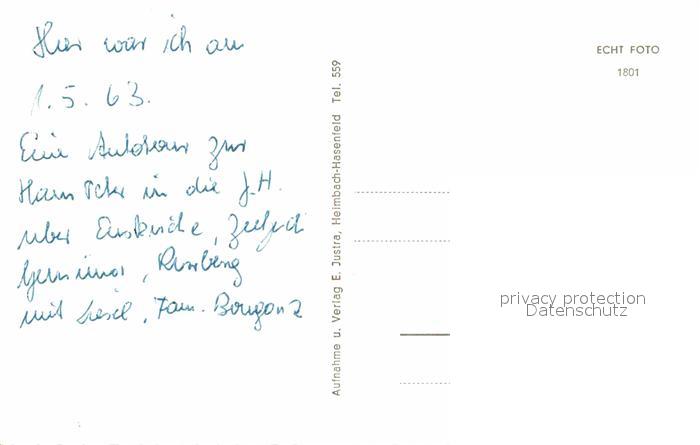 Hier war ich am
1.5.63.
Eine Autotour zur
in die J.H.
über Euskirche,
mit Liesel, Fam.
Aufnahme u. Verlag E. Justra, Heimbach-Hasenfeld Tel. 559
ECHT FOTO
1801
privacy protection
Datenschutz